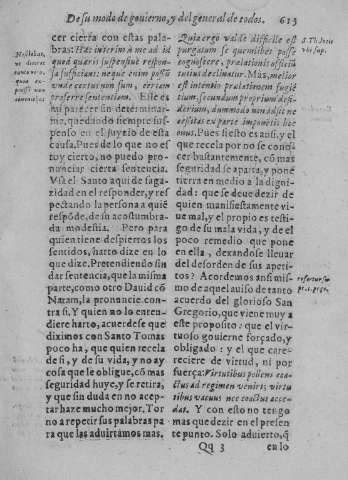 De su modo de gouierno, y del general de todos. 613
cer cierra con estas pala-
bras: Hæc interim à me ad id
quod quæris suspensiuè respon-
sa sufficiant: neque enim possū
vnde certus non sum, certam
proferre sententiam. Este es
mi parecer sin determinar-
me, quedando siempre sus-
penso en el juyzio de esta
causa. Pues de lo que no es
toy cierto, no puedo pro-
nunciar cierta sentencia.
Vsa el Santo aqui de saga-
zidad en el responder, y res
pectando la persona a quiē
respōde, de su acostumbra-
da modestia. Pero para
quien tiene despiertos los
sentidos, harto dize en lo
que dize. Pretendiendo sin
dar sentencia, que la misma
parte, como otro Dauid cō
Natam, la pronuncie con-
tra si. Y quien no lo enten-
diere harto, acuerdese que
diximos con Santo Tomas
poco ha, que quien recela
de si, y de su vida, y no ay
cosa que le obligue, cō mas
seguridad huye, y se retira,
y que sin duda en no acep-
tar haze mucho mejor. Tor
no a repetir sus palabras pa
ra que las aduirtamos mas.
Quia ergo valdè difficile est
purgatum se quemlibet posse
cognoscere, prælationis officiū
tutius declinatur. Mas, melior
est intentio prælationem fugiē
tium, secundum proprium desi-
derium, dummodo non adsit ne
cessitas ex parte imponētis ho
onus. Pues si esto es ansi, y el
que recela por no se conos-
cer bastantemente, cō mas
seguridad se aparta, y pone
tierra en medio a la digni-
dad: que se deue dezir de
quien manifiestamente vi-
ue mal, y el propio es testi-
go de su mala vida, y de el
poco remedio que pone
en ella, dexandose lleuar
del desorden de sus apeti-
tos? Acordemos ansi mis-
mo de aquel auiso de tanto
acuerdo del glorioso San
Gregorio, que viene muy a
este proposito: que el vir-
tuoso gouierne forçado, y
obligado: y el que care-
reciere de virtud, ni por
fuerça: Virtutibus pollens coa-
ctus ad regimen veniat; virtu
tibus vacuus nec coactus acce-
dat. Y con esto no tengo
mas que dezir en el presen
te punto. Solo aduierto, q̄
Qq 3 en lo